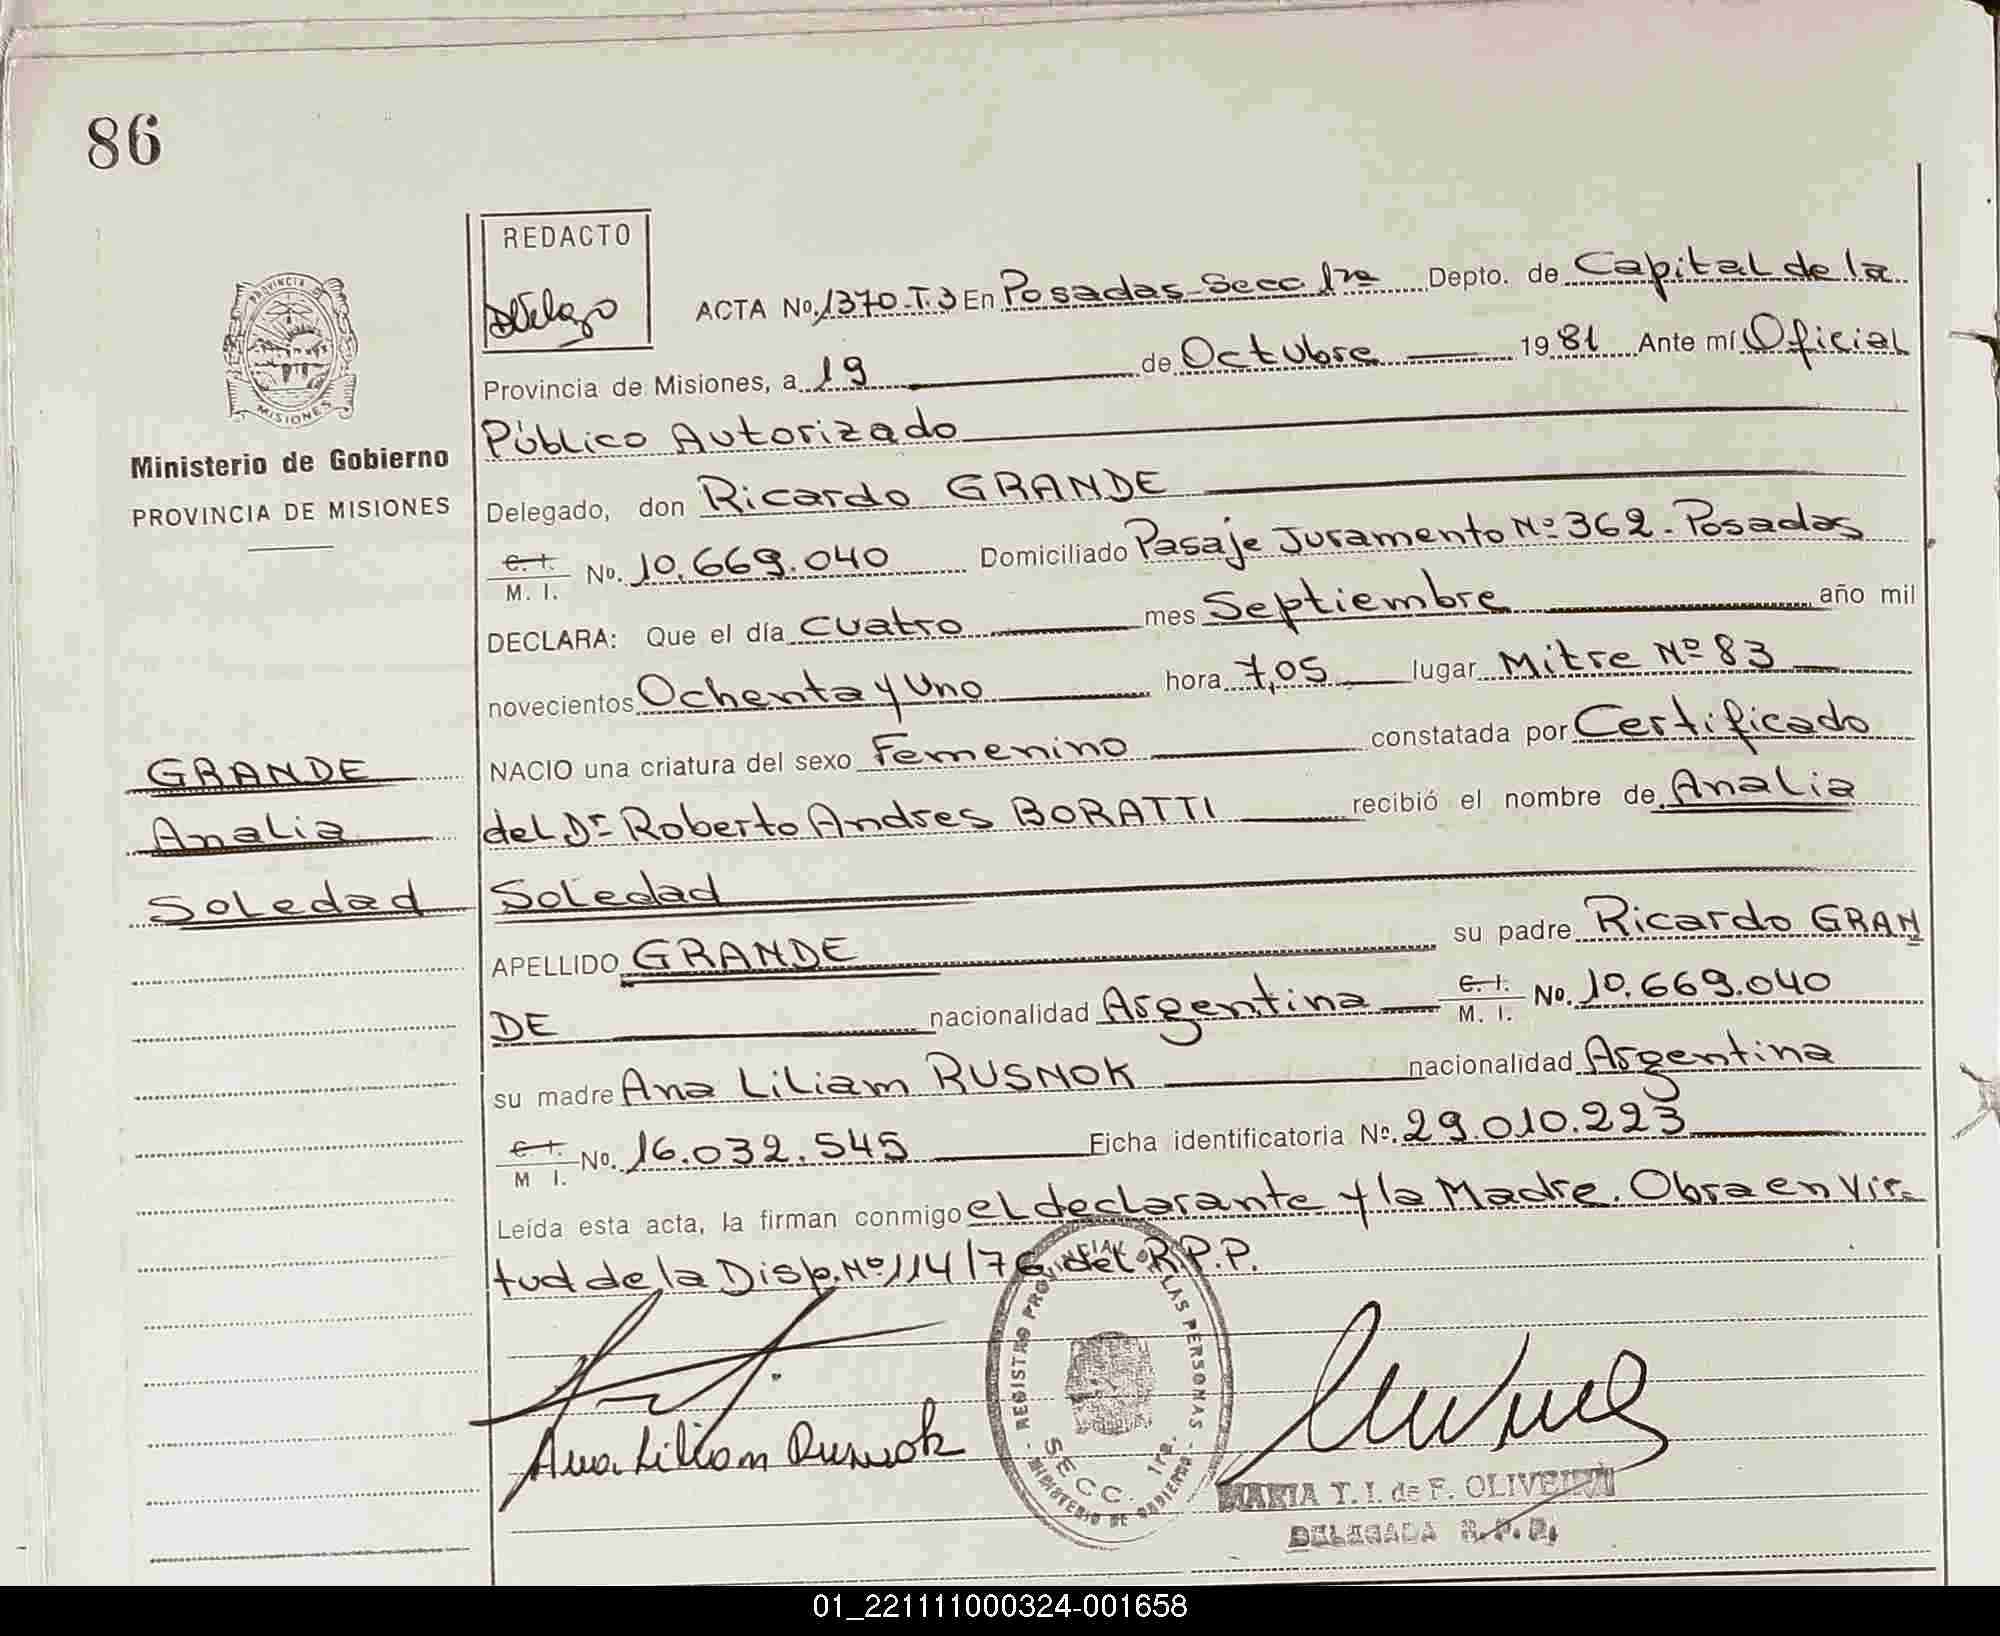 86
REDACTO
PROVINCIA DE
MISIONES
Ministerio de Gobierno
PROVINCIA DE MISIONES
ACTA No. 1370-T.3 En Posadas-Secc 1ra Depto. de Capital de la
Provincia de Misiones, a 19 de Octubre 1981 Ante mí Oficial
Público Autorizado
Delegado, don Ricardo GRANDE
C. I.
M. I. No. 10.669.040 Domiciliado Pasaje Juramento Nº 362-Posadas
DECLARA: Que el día cuatro mes Septiembre año mil
novecientos Ochenta y Uno hora 7,05 lugar Mitre Nº 83
NACIO una criatura del sexo Femenino constatada por Certificado
del Dr Roberto Andres BORATTI recibió el nombre de Analia
Soledad
GRANDE
Analia
Soledad
APELLIDO GRANDE su padre Ricardo GRAN
DE nacionalidad Argentina C. I.
M. I. No. 10.669.040
su madre Ana Liliam RUSNOK nacionalidad Argentina
C. I.
M I. No. 16.032.545 Ficha identificatoria Nº. 29.010.223
Leída esta acta, la firman conmigo el declarante y la Madre. Obra en Vir-
tud de la Disp. Nº 114/76 del R.P.P.
REGISTRO PROVINCIAL DE LAS PERSONAS
MINISTERIO DE GOBIERNO
SECC. 1ra.
Ana Lilian Rusnok
MARIA T. I. de F. OLIVEIRA
DELEGADA R. P. P.
01_221111000324-001658